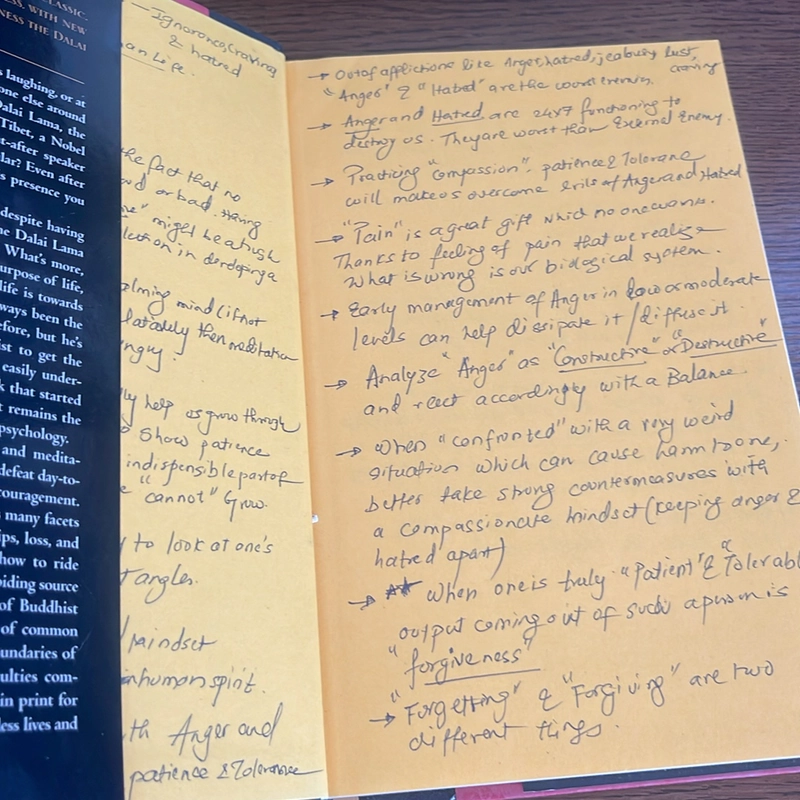 CLASSIC.
SS, WITH NEW
NESS THE DALAI
s laughing, or at
one else around
Dalai Lama, the
Tibet, a Nobel
t-after speaker
lar? Even after
s presence you
despite having
he Dalai Lama
What's more,
urpose of life,
life is towards
ways been the
efore, but he's
ist to get the
easily under-
k that started
remains the
psychology.
and medita-
defeat day-to-
couragement.
many facets
ips, loss, and
how to ride
iding source
of Buddhist
of common
undaries of
culties com-
in print for
less lives and
- Ignorance, Craving
& hatred
an Life.
the fact that no
od or bad. Having
might be a
lution in developing a
alming mind (if not
then meditation
ngry.
ly help us grow through
o show patience
indispensible part of
e "cannot" Grow.
to look at one's
t angles.
mindset
human spirit.
th Anger and
patience & Tolerance
→ Out of afflictions like Anger, hatred, jealousy, lust, craving
"Anger" & "Hatred" are the worst enemies.
→ Anger and Hatred are 24x7 functioning to
destroy us. They are worst than External Enemy.
→ Practicing "compassion", patience & Tolerance
will make us overcome evils of Anger and Hatred
→ "Pain" is a great gift which no one wants.
Thanks to feeling of pain that we realize
What is wrong is our biological system.
→ Early management of Anger in low or moderate
levels can help dissipate it / diffuse it.
→ Analyze "Anger" as "Constructive" or "Destructive"
and react accordingly with a Balance.
→ When "confronted" with a very weird
situation which can cause harm to one,
better take strong countermeasures with
a compassionate mindset (keeping anger &
hatred apart)
→ ** When one is truly "Patient" & "Tolerabl
output coming out of such a person is
"forgiveness"
→ "Forgetting" & "Forgiving" are two
different tings.